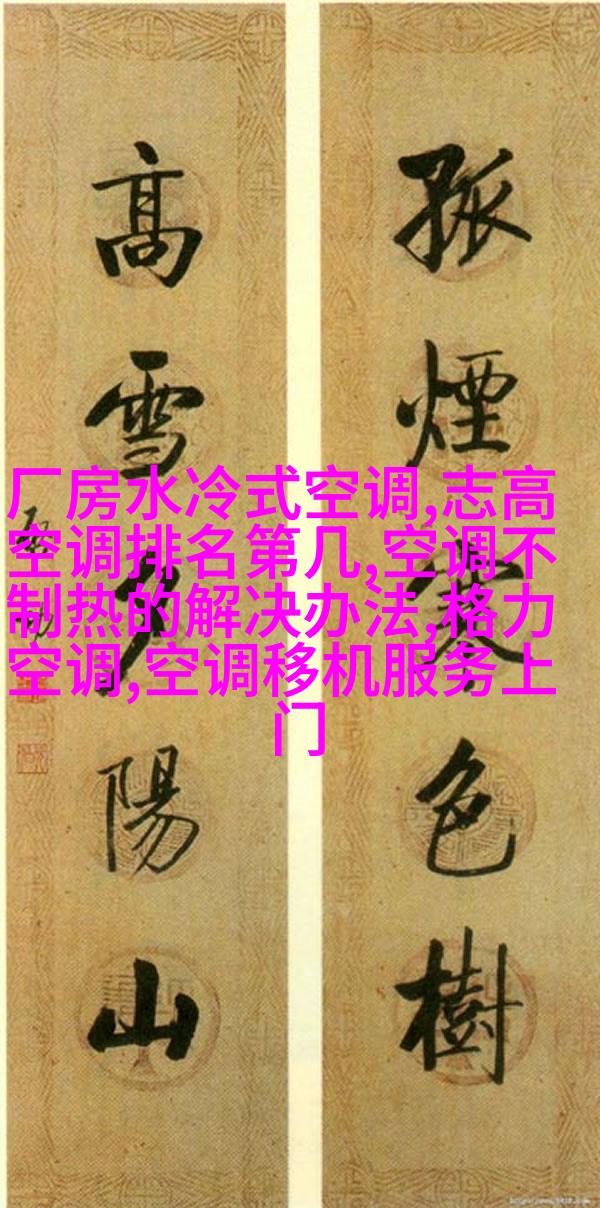 孤煙寒色樹
高雪夕陽山
厂房水冷式空调,志高
空调排名第几,空调不
制热的解决办法,格力
空调,空调移机服务上
门